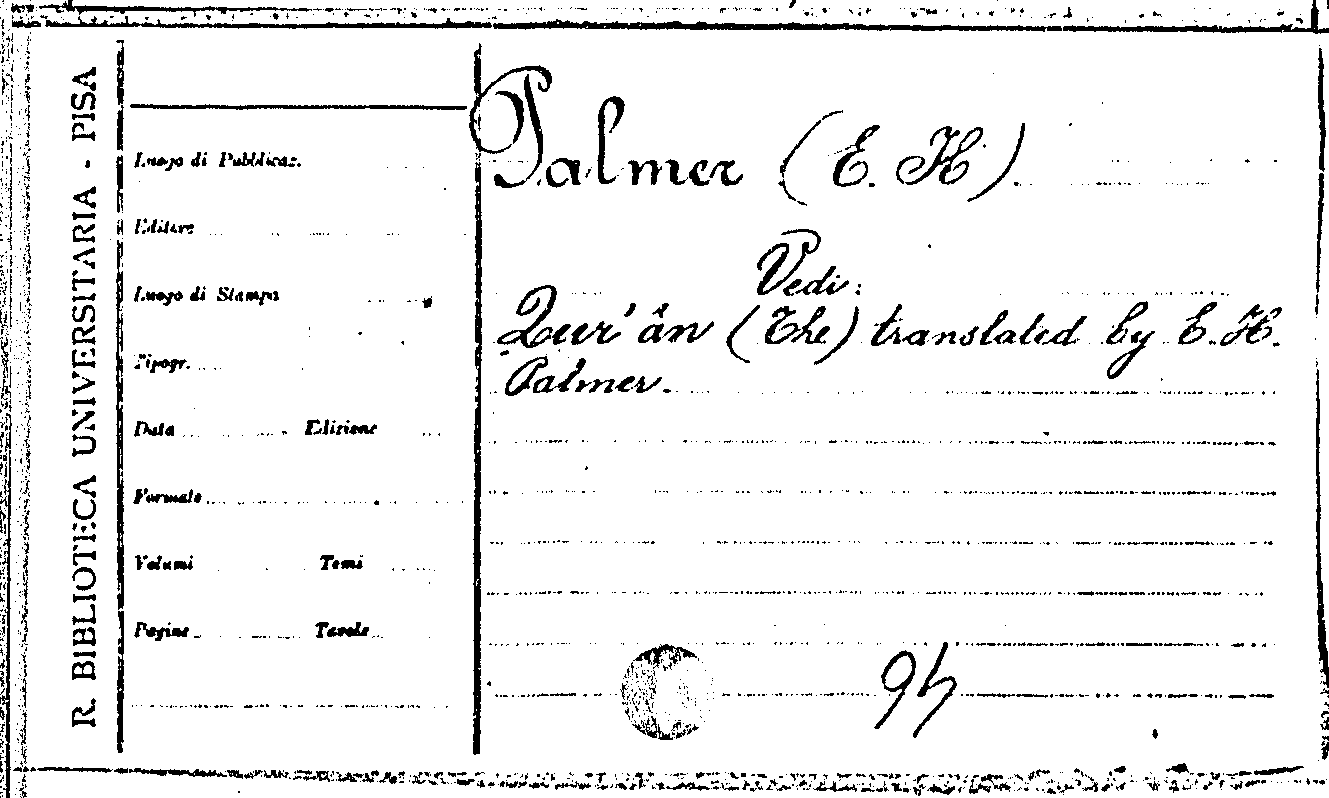 R. BIBLIOTECA UNIVERSITARIA - PISA
Luogo di Pubblicaz.
Editore
Luogo di Stampa
Tipogr.
Data Edizione
Formato
Volumi Tomi
Pagine Tavole
Palmer (E. H)
Vedi:
Qur'ân (The) translated by E. H.
Palmer.
94